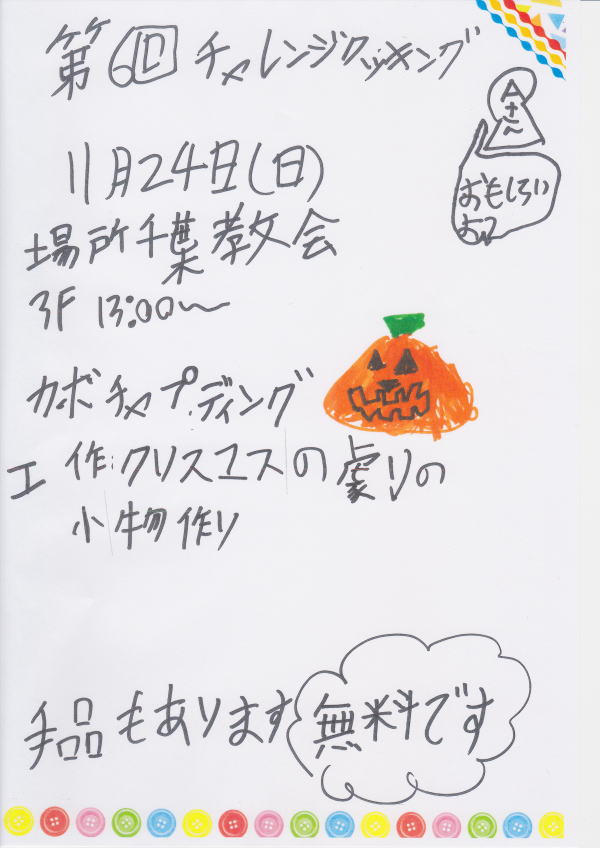 第6回 チャレンジクッキング
Aさん
おもしろい
よ
11月24日(日)
場所千葉教会
3F 13:00〜
カボチャプディング
工作:クリスマスの劇りの
小物作り
手品もあります
無料です